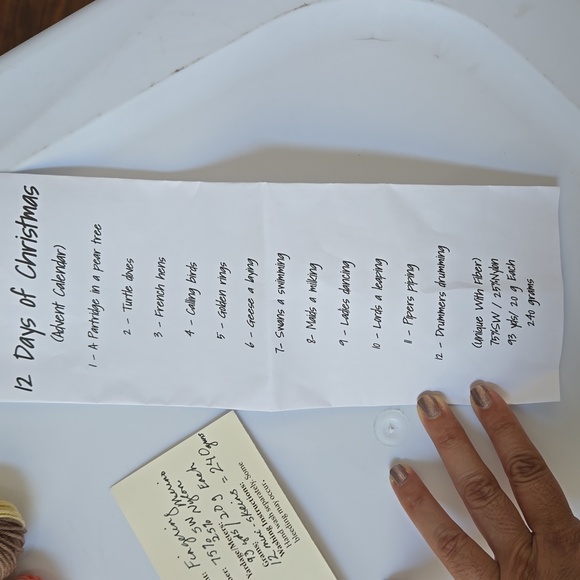 12 Days of Christmas
(Advent Calendar)
1 - A Partridge in a pear tree
2 - Turtle doves
3 - French hens
4 - Calling birds
5 - Golden rings
6 - Geese a laying
7 - Swans a swimming
8 - Maids a milking
9 - Ladies dancing
10 - Lords a leaping
11 - Pipers piping
12 - Drummers drumming
(Unique With Fiber)
75%SW / 25%Nylon
93 yds/ 20 g Each
240 grams
75% SW
25% Nylon
Yardage/Meters:
93 yds / 20 g Each
Grams:
12 mini-skeins = 240 gms
Washing Instructions:
Hand wash separately. Some
bleeding may occur.